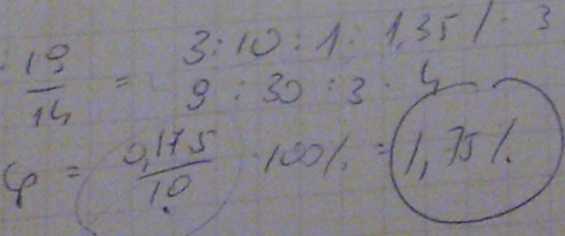 19/14 = 3:10:1:1,35 / · 3
9:30:3:4
φ = 0,175/10 · 100% = 1,75%